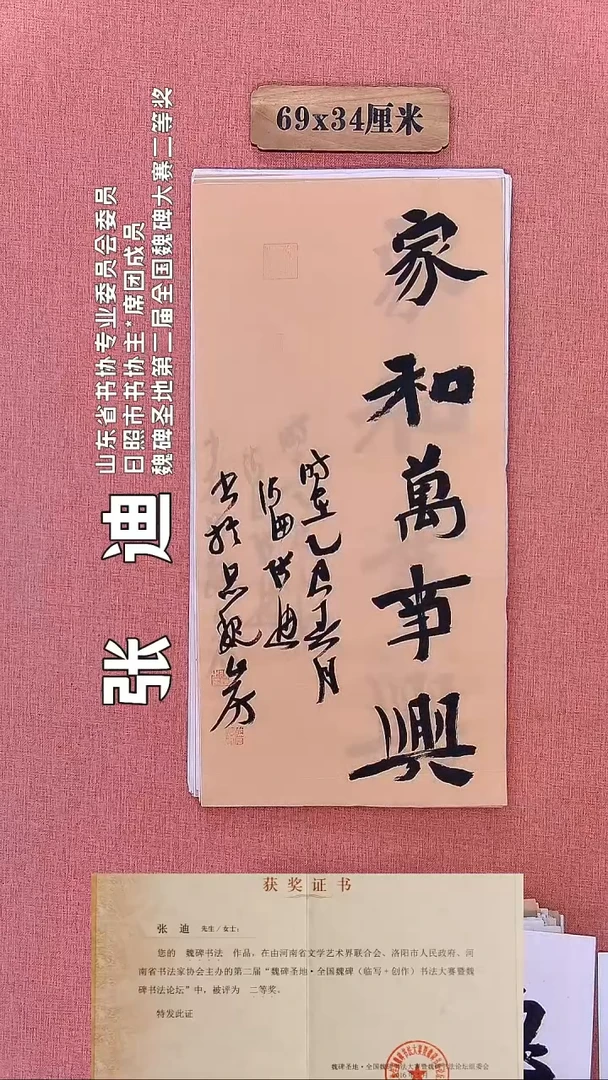 69x34厘米
山东省书协专业委员会委员
日照市书协主*席团成员
魏碑圣地第二届全国魏碑大赛二等奖
张 迪
家和萬事興
时在乙巳春月
张迪
书於
获奖证书
张 迪 先生/女士:
您的 魏碑书法 作品,在由河南省文学艺术界联合会、洛阳市人民政府、河
南省书法家协会主办的第二届“魏碑圣地·全国魏碑(临写+创作)书法大赛暨魏
碑书法论坛”中,被评为 二等奖。
特发此证
魏碑圣地·全国魏碑书法大赛暨魏碑书法论坛组委会